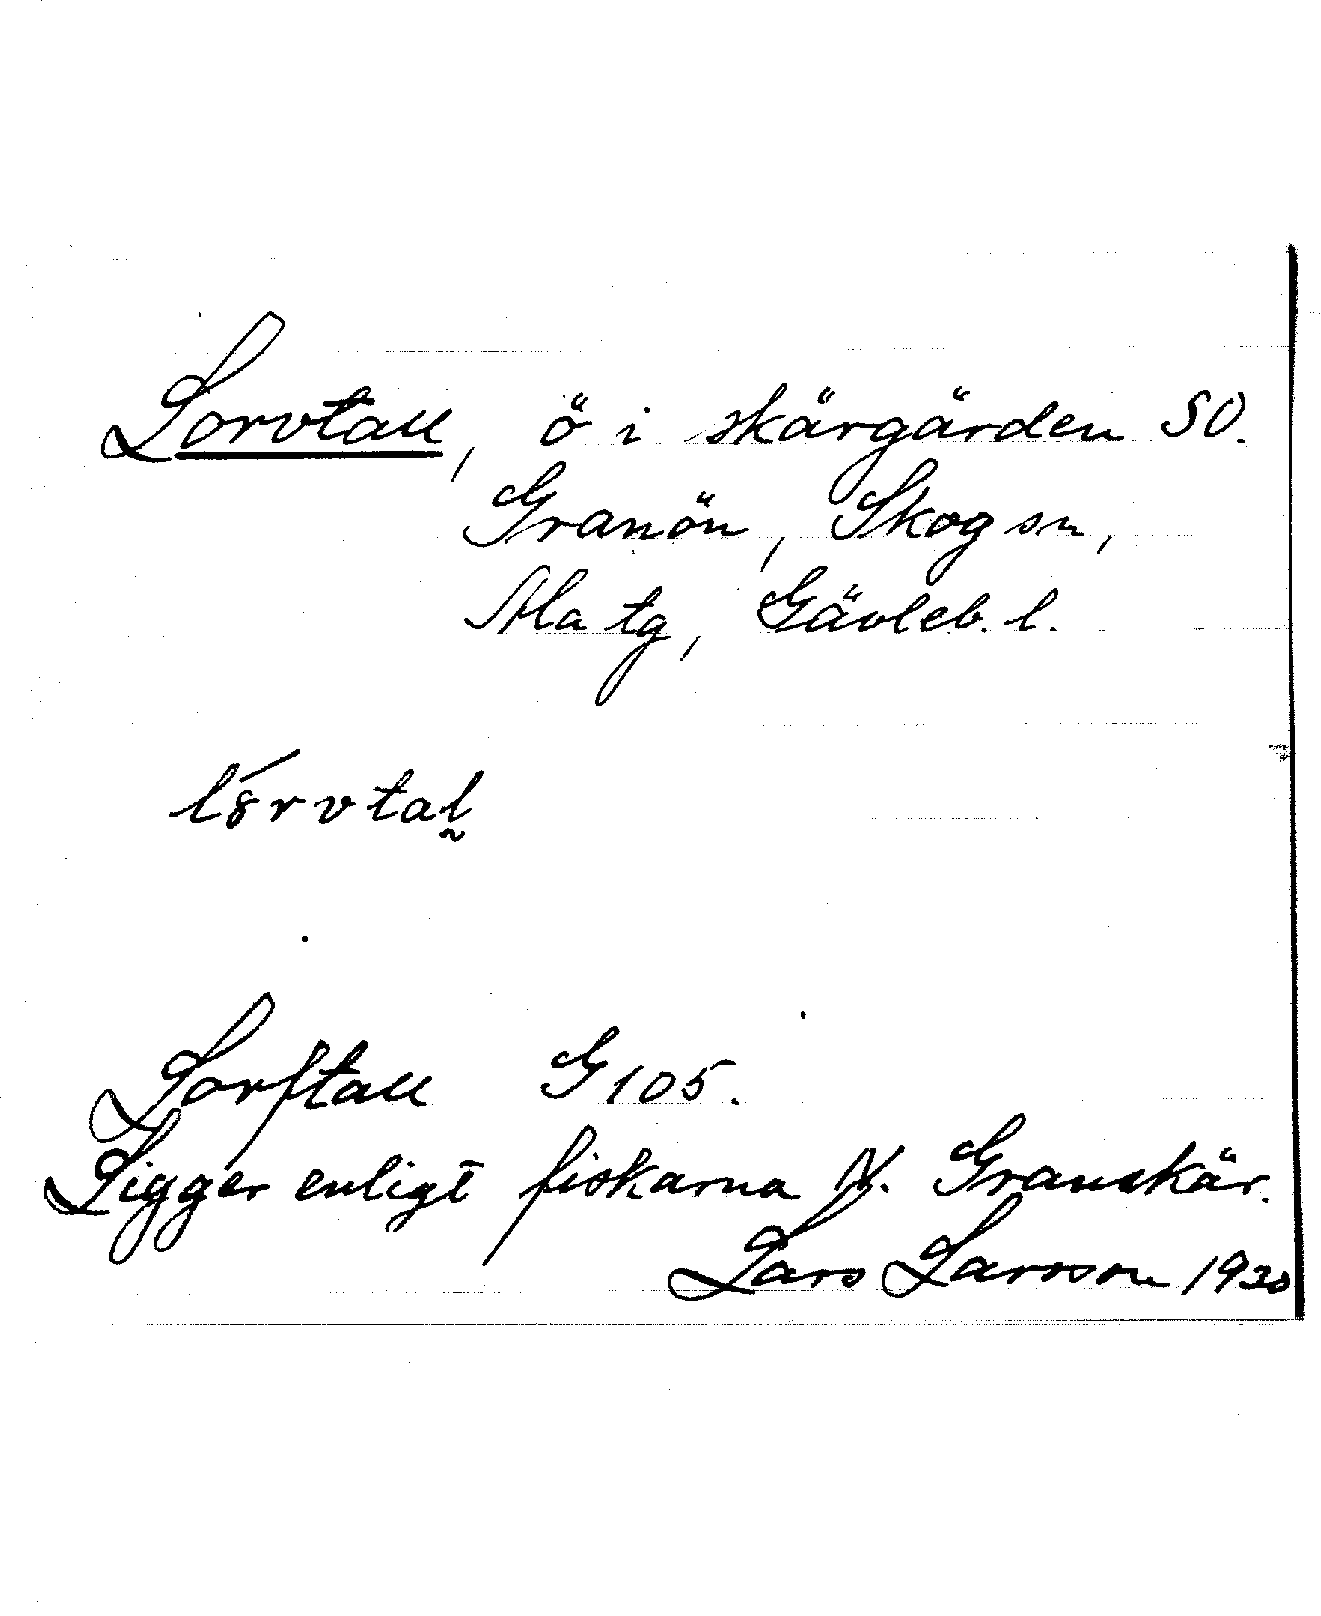 Lorvtall, ö i skärgården SO.
Granön, Skog sn,
Ala tg, Gävleb. l.
lórvtal̰
Lorftall G 105.
Ligger enligt fiskarna N. Granskär.
Lars Larsson 1930